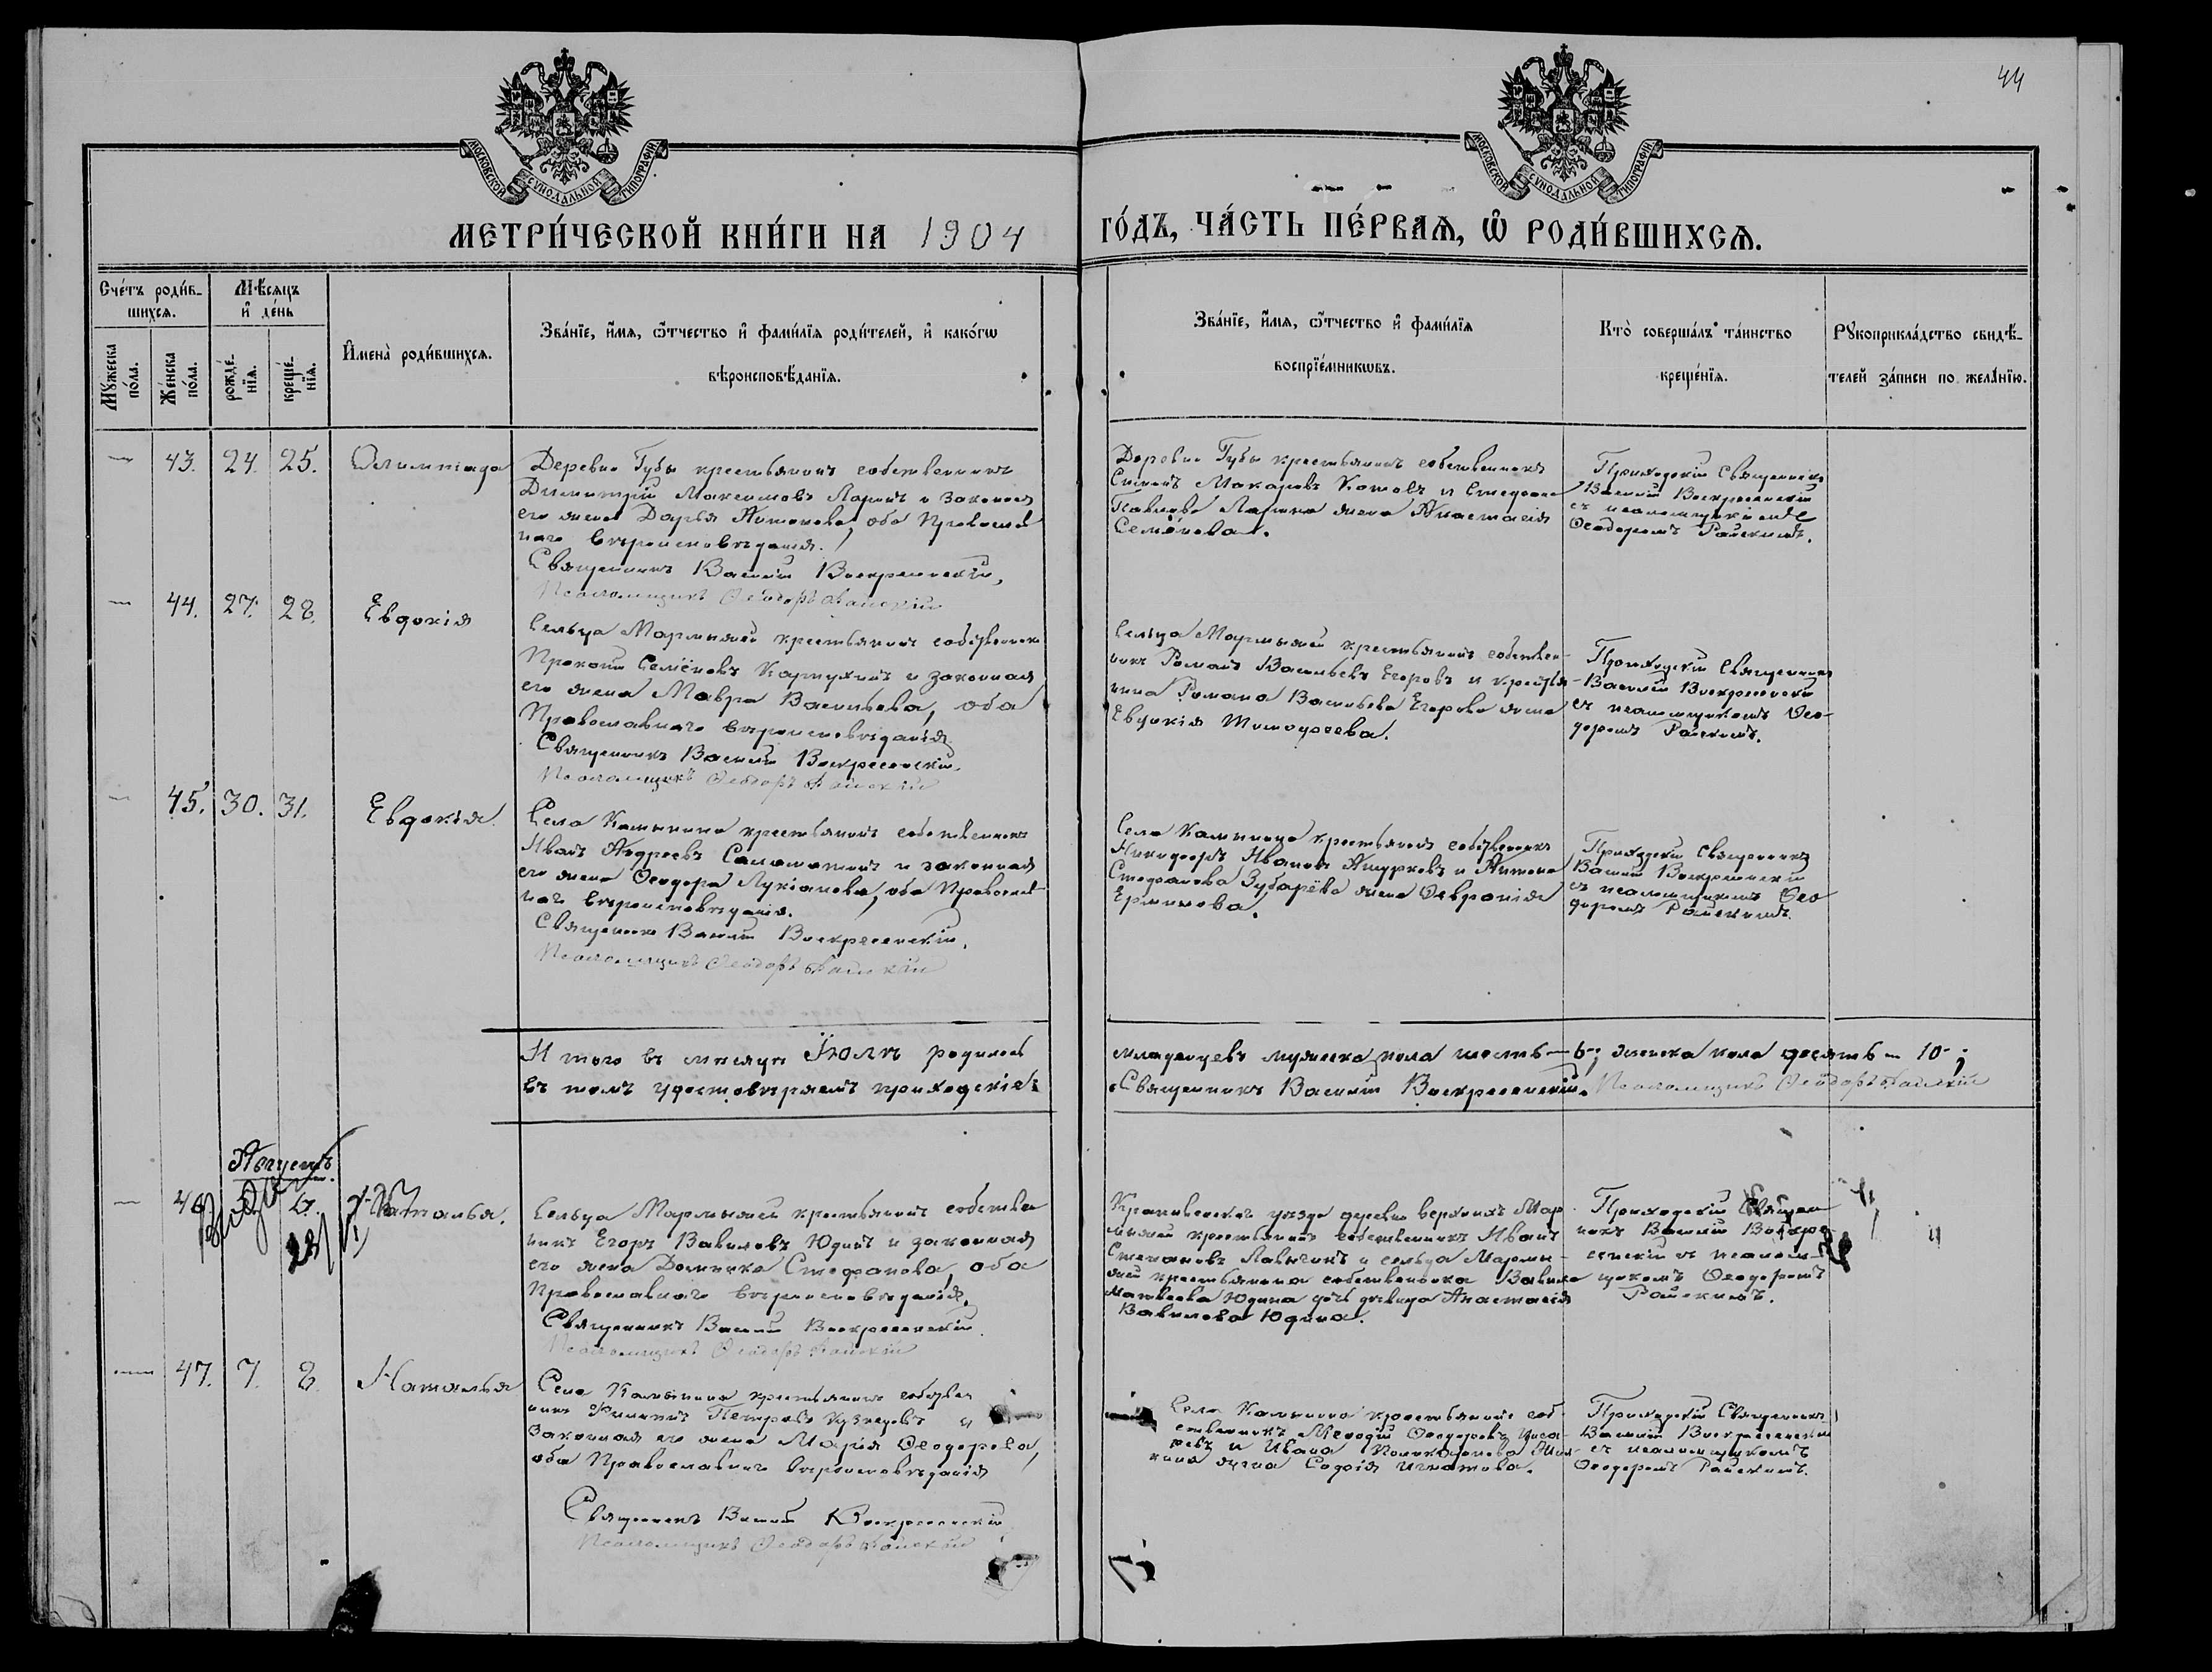 44
МОСКОВСКОЙ СѴНОДАЛЬНОЙ ТИПОГРАФІИ
МОСКОВСКОЙ СѴНОДАЛЬНОЙ ТИПОГРАФІИ
МЕТРИ́ЧЕСКОЙ КНИ́ГИ НА 1904 ГО́ДЪ, ЧА́СТЬ ПЕ́РВАѦ, Ѿ РОДИ́ВШИХСѦ.
Сче́тъ роди́в-
шихсѧ.
Мѣ́сѧцъ
и҆ де́нь
Мꙋ́жеска
по́ла.
Же́нска
по́ла.
рожде́-
нїѧ.
креще́-
нїѧ.
И҆мена̀ роди́вшихсѧ.
Зва́нїе, и҆́мѧ, ѻ҆́тчество и҆ фами́лїѧ роди́телей, и҆ како́гѡ
вѣроисповѣ́данїѧ.
Зва́нїе, и҆́мѧ, ѻ҆́тчество и҆ фами́лїѧ
воспрїе́мникѡвъ.
Кто̀ соверша́лъ та́инство
креще́нїѧ.
Рꙋкоприкла́дство свидѣ́-
телей за́писи по жела́нїю.
— 43. 24. 25. Олимпіада
Деревни Губы крестьянинъ собственникъ
Димитрій Максимовъ Ларинъ и законная
его жена Дарья Антонова, оба Православ
наго вѣроисповѣданія.
Священникъ Василій Воскресенскій,
Псаломщикъ Ѳеодоръ Райскій
Деревни Губы крестьянинъ собственникъ
Макаровъ Котовъ и Стефана
Павлова Ларина жена Анастасія
Семёнова.
Приходскій Священникъ
Василій Воскресенскій
съ псаломщикомъ
Ѳеодоромъ Райскимъ.
— 44. 27. 28. Евдокія
Сельца Мармыжей крестьянинъ собственникъ
Прокопій Семёновъ Картухинъ и законная
его жена Мавра Васильева, оба
Православнаго вѣроисповѣданія
Священникъ Василій Воскресенскій.
Псаломщикъ Ѳеодоръ Райскій
Сельца Мармыжей крестьянинъ собствен-
никъ Романъ Васильевъ Егоровъ и крестья-
нина Романа Васильева Егорова жена
Евдокія Тимофеева.
Приходскій Священникъ
Василій Воскресенскій
съ псаломщикомъ Ѳео-
доромъ Райскимъ.
— 45. 30. 31. Евдокія
Села Калинина крестьянинъ собственникъ
Иванъ Андреевъ Саломатинъ и законная
его жена Ѳеодора Лукіанова, оба Православ-
наго вѣроисповѣданія.
Священникъ Василій Воскресенскій.
Псаломщикъ Ѳеодоръ Райскій
Села Калинина крестьянинъ собственникъ
Никифоръ Ивановъ Ашурковъ и Антона
Стефанова Зубарёва жена Февронія
Ермилова.
Приходскій Священникъ
Василій Воскресенскій
съ псаломщикомъ Ѳео
доромъ Райскимъ.
Итого въ мѣсяцѣ Іюлѣ родилось младенцевъ мужеска пола шесть — 6-; женска пола десять — 10-;
въ томъ удостовѣряемъ приходскіе: Священникъ Василій Воскресенскій. Псаломщикъ Ѳеодоръ Райскій
Августъ.
— 46 6. Наталья.
Сельца Мармыжей крестьянинъ собствен
никъ Егоръ Вавиловъ Юдинъ и законная
его жена Домника Стефанова, оба
Православнаго вѣроисповѣданія.
Священникъ Василій Воскресенскій.
Псаломщикъ Ѳеодоръ Райскій
Крапивенскаго уѣзда деревни верхнихъ Мар
мыжей крестьянинъ собственникъ Иванъ
Степановъ и сельца Мармы-
жей крестьянина собственника Вавила
Матвеева Юдина дочь дѣвица Анастасія
Вавилова Юдина.
Приходскій Священ
никъ Василій Воскре
сенскій съ псалом-
щикомъ Ѳеодоромъ
Райскимъ.
— 47. 7. 8. Наталья
Села Калинина крестьянинъ собствен
никъ Филиппъ Петровъ Кузнецовъ и
законная его жена Марія Ѳеодорова,
оба Православнаго вѣроисповѣданія
Священникъ Василій Воскресенскій
Псаломщикъ Ѳеодоръ Райскій
Села Калинина крестьянинъ соб-
ственникъ Меѳодій Ѳеодоровъ
и Ивана
жена Софія Игнатова.
Приходскій Священникъ
Василій Воскресенскій
съ псаломщикомъ
Ѳеодоромъ Райскимъ.